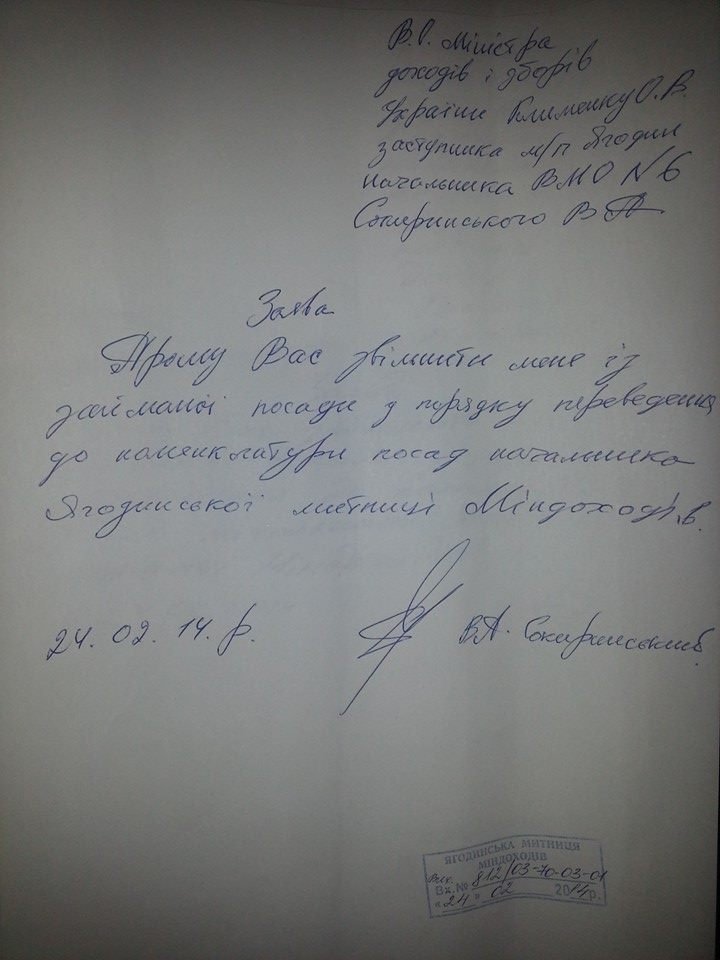 В.О. Міністра
доходів і зборів
України Клименку О.В.
заступника м/п Ягодин
начальника ВМО №6
Сокиринського В
Заява
Прошу Вас звільнити мене із
займаної посади у порядку переведення
до номенклатури посад начальника
Ягодинської митниці Міндоходів.
24. 02. 14. р. В.А. Сокиринський
ЯГОДИНСЬКА МИТНИЦЯ
МІНДОХОДІВ
Вх. № 812/03-70-03-01
"24" 02 2014р.